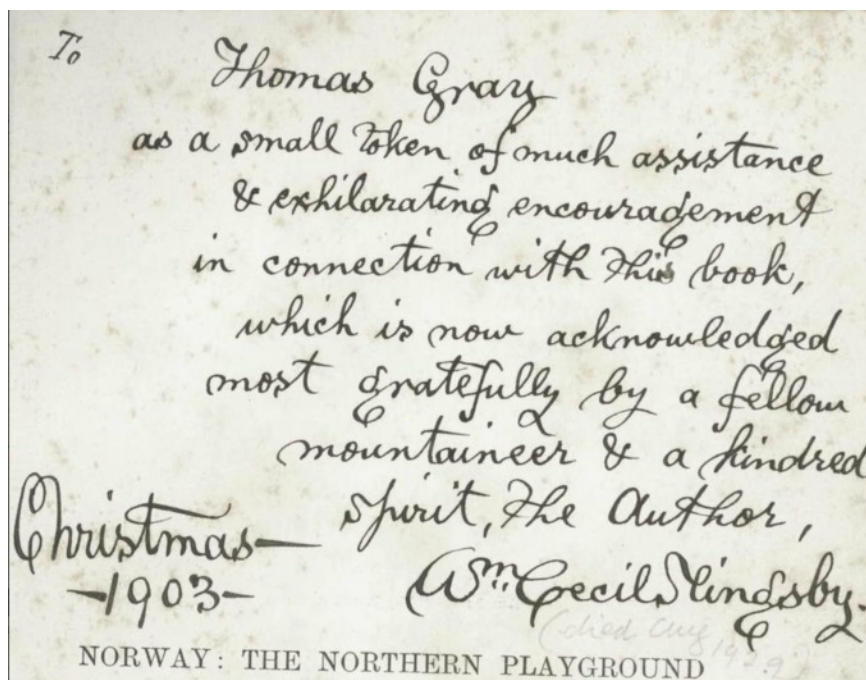 To
Thomas Gray
as a small token of much assistance
& exhilarating encouragement
in connection with this book,
which is now acknowledged
most gratefully by a fellow
mountaineer & a kindred
spirit, the Author,
Christmas—
—1903—
Wm. Cecil Slingsby.
(died Aug
1929)
NORWAY: THE NORTHERN PLAYGROUND